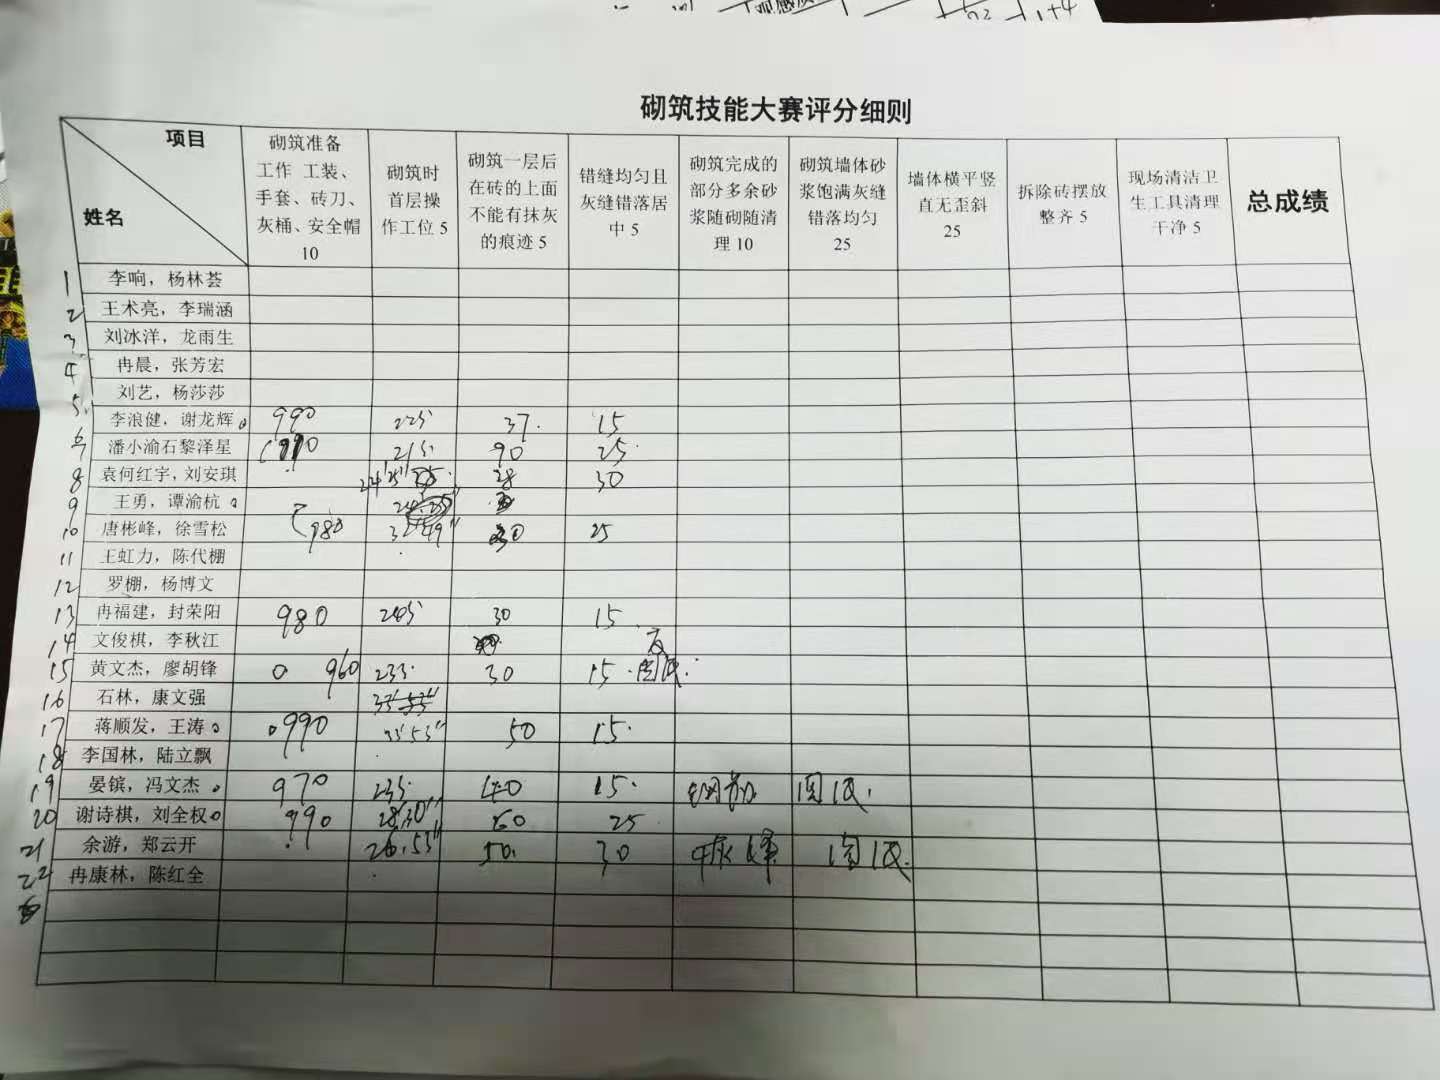 砌筑技能大赛评分细则
项目
姓名
砌筑准备
工作 工装、
手套、砖刀、
灰桶、安全帽
10
砌筑时
首层操
作工位 5
砌筑一层后
在砖的上面
不能有抹灰
的痕迹 5
错缝均匀且
灰缝错落居
中 5
砌筑完成的
部分多余砂
浆随砌随清
理 10
砌筑墙体砂
浆饱满灰缝
错落均匀
25
墙体横平竖
直无歪斜
25
拆除砖摆放
整齐 5
现场清洁卫
生工具清理
干净 5
总成绩
1 李响，杨林荟
2 王术亮，李瑞涵
3 刘冰洋，龙雨生
4 冉晨，张芳宏
5 刘艺，杨莎莎
6 李浪健，谢龙辉 990 225 37 15
7 潘小渝石黎泽星 990 215 90 25
8 袁何红宇，刘安琪 24'25" 28 30
9 王勇，谭渝杭
10 唐彬峰，徐雪松 980 32'49" 30 25
11 王虹力，陈代棚
12 罗棚，杨博文
13 冉福建，封荣阳 980 245 30 15
14 文俊棋，李秋江
15 黄文杰，廖胡锋 960 235 30 15
16 石林，康文强
17 蒋顺发，王涛 990 33'53" 50 15
18 李国林，陆立飘
19 晏镔，冯文杰 970 235 40 15
20 谢诗棋，刘全权 990 28'30" 60 25
21 余游，郑云开 26'53" 50 30
22 冉康林，陈红全